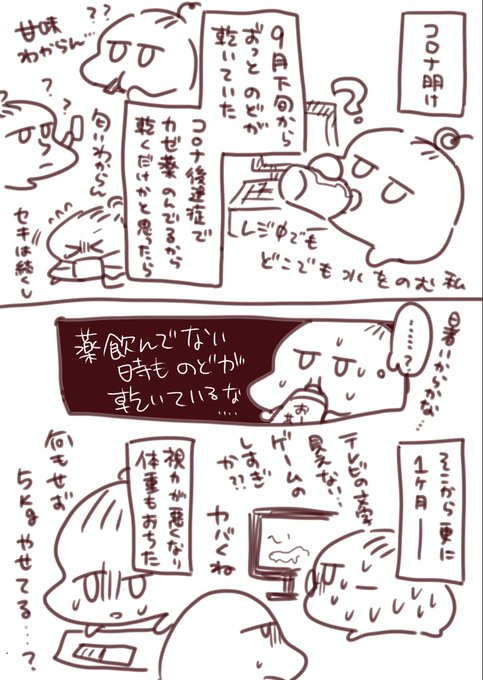 コロナ明け
9月下旬から
ずっと のどが
乾いていた
コロナ後遺症で
カゼ薬 のんでるから
乾くだけかと思ったら
？
レジ中でも
どこでも 水をのむ 私
？？
甘味
わからん…
？
？
匂いわからん
セキは続くし
……？
暑いからかな…
薬飲んでない
時も のどが
乾いているな
….
そこから更に
1ヶ月――
テレビの文字
見えない…
ゲームの
しすぎ
か??
視力が悪くなり
体重もおちた
ヤバくね
何もせず
5kg やせてる…？